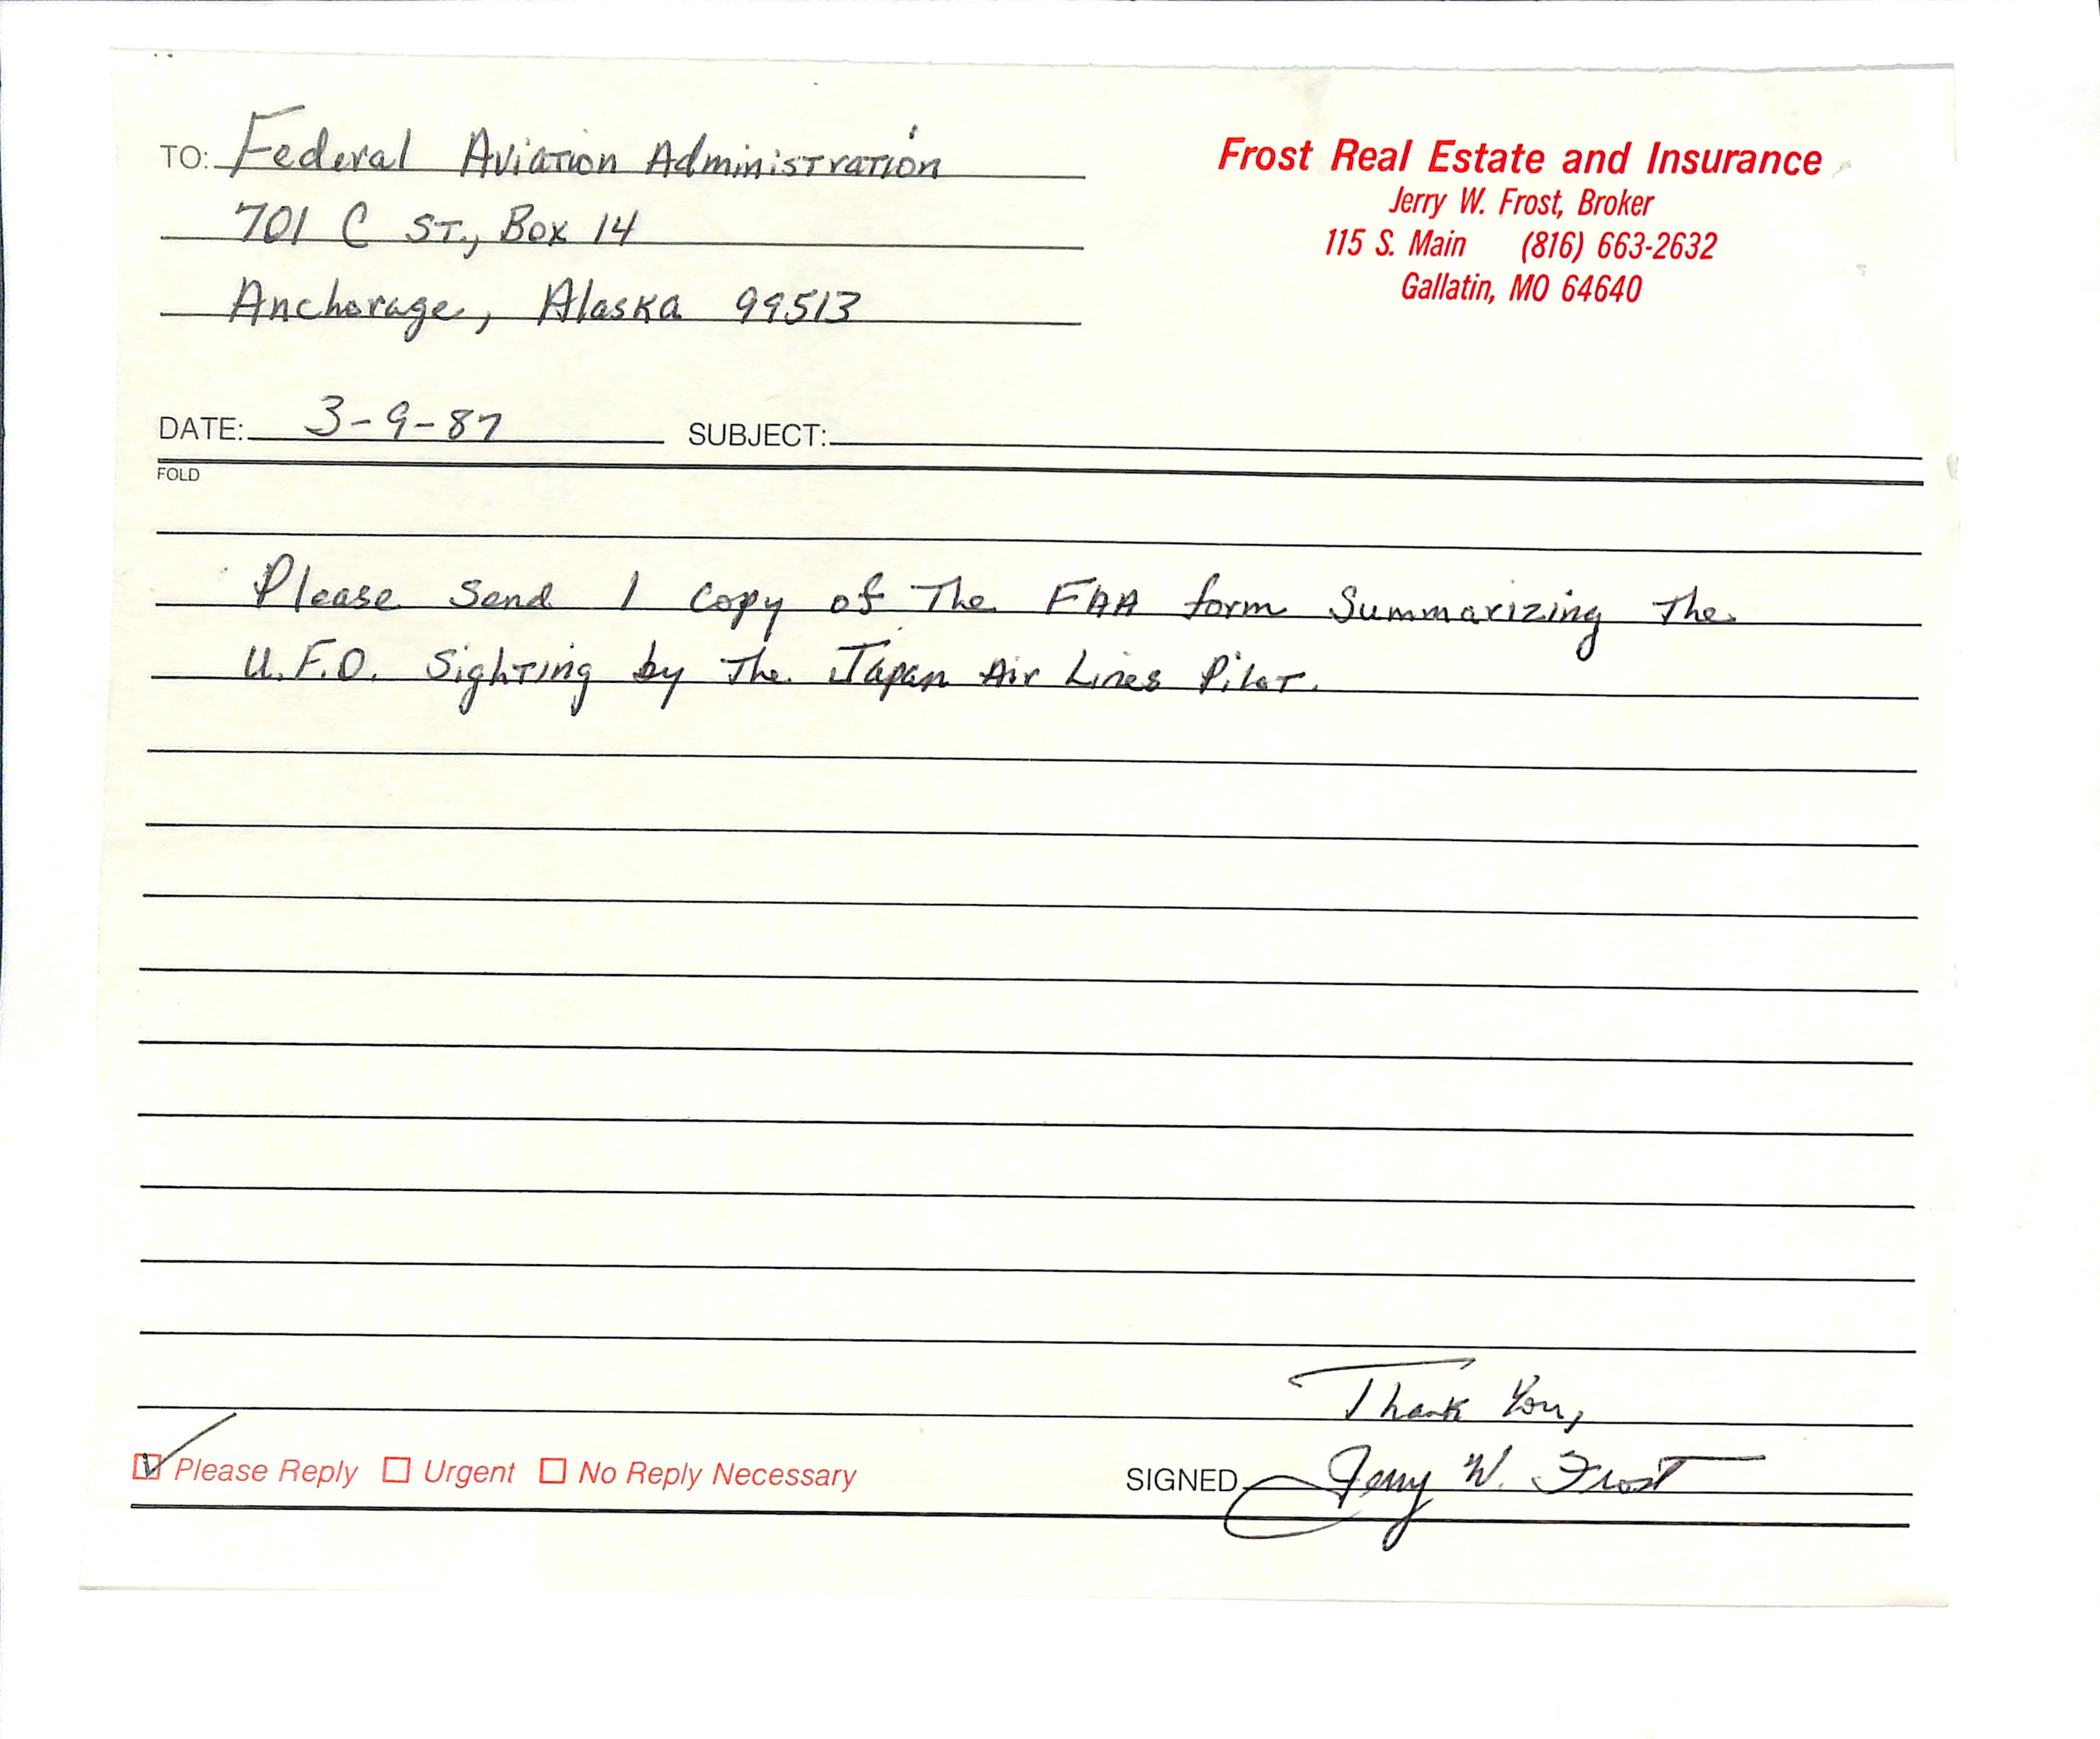 TO: Federal Aviation Administration
701 C St., Box 14
Anchorage, Alaska 99513
Frost Real Estate and Insurance
Jerry W. Frost, Broker
115 S. Main (816) 663-2632
Gallatin, MO 64640
DATE: 3-9-87 SUBJECT:
FOLD
Please Send 1 Copy of The FAA form Summarizing The
U.F.O. Sighting by The Japan Air Lines Pilot.
Thank You,
Please Reply Urgent No Reply Necessary
SIGNED Jerry W. Frost